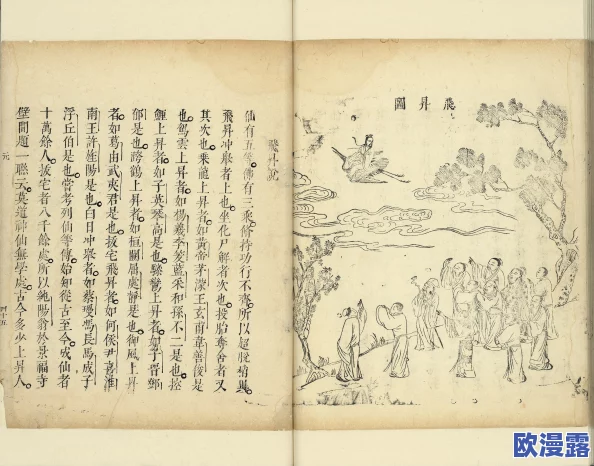 飛昇圖
飛昇說
仙有五等。佛有三乘。脩持功行不齊。所以超脫稍異。
飛昇冲舉者上也。坐化尸解者次也。投胎奪舍者又
其次也。乘龍上昇者。如黃帝茅濛王玄甫韋善俊是
也。駕雲上昇者。如楊羲李荾藍采和孫不二是也。控
鯉上昇者。如子英琴高是也。驂鸞上昇者。如子晉鄧
郁是也。跨鶴上昇者。如桓闓屈處靜是也。御風上昇
者。如葛由武夷君是也。拔宅飛昇者。如何侯尹喜淮
南王許旌陽是也。白日冲舉者。如蔡瓊馮長馬成子
浮丘伯是也。嘗考列仙等傳。始知從古至今。成仙者
十萬餘人。拔宅者八千餘處。所以純陽翁於景福寺
壁間題一聯云。莫道神仙無學處。古今多少上昇人。
元
四十五
欧漫露